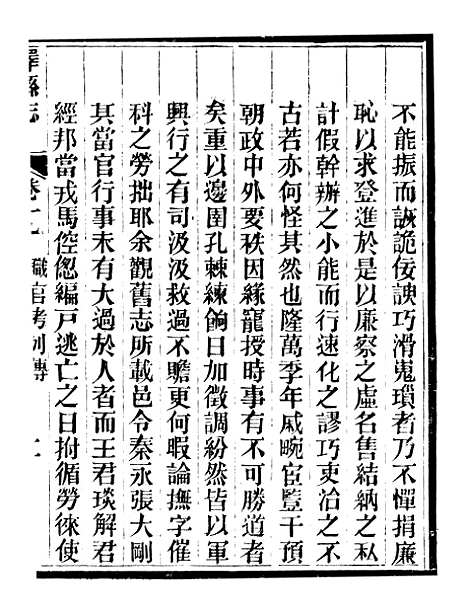 不能振而誕詭佞諛巧滑嵬瑣者乃不憚捐廉
恥以求登進於是以廉察之虛名售結納之私
計假幹辦之小能而行速化之謬巧吏治之不
古若亦何怪其然也隆萬季年戚畹宦豎干預
朝政中外要秩因緣寵授時事有不可勝道者
矣重以邊圉孔棘練餉日加徵調紛然皆以軍
興行之有司汲汲救過不贍更何暇論撫字催
科之勞拙耶余觀舊志所載邑令秦永張大剛
其當官行事未有大過於人者而王君琰解君
經邦當戎馬倥傯編戸逃亡之日拊循勞徠使
嶧縣志 卷十九 職官考列傳 二